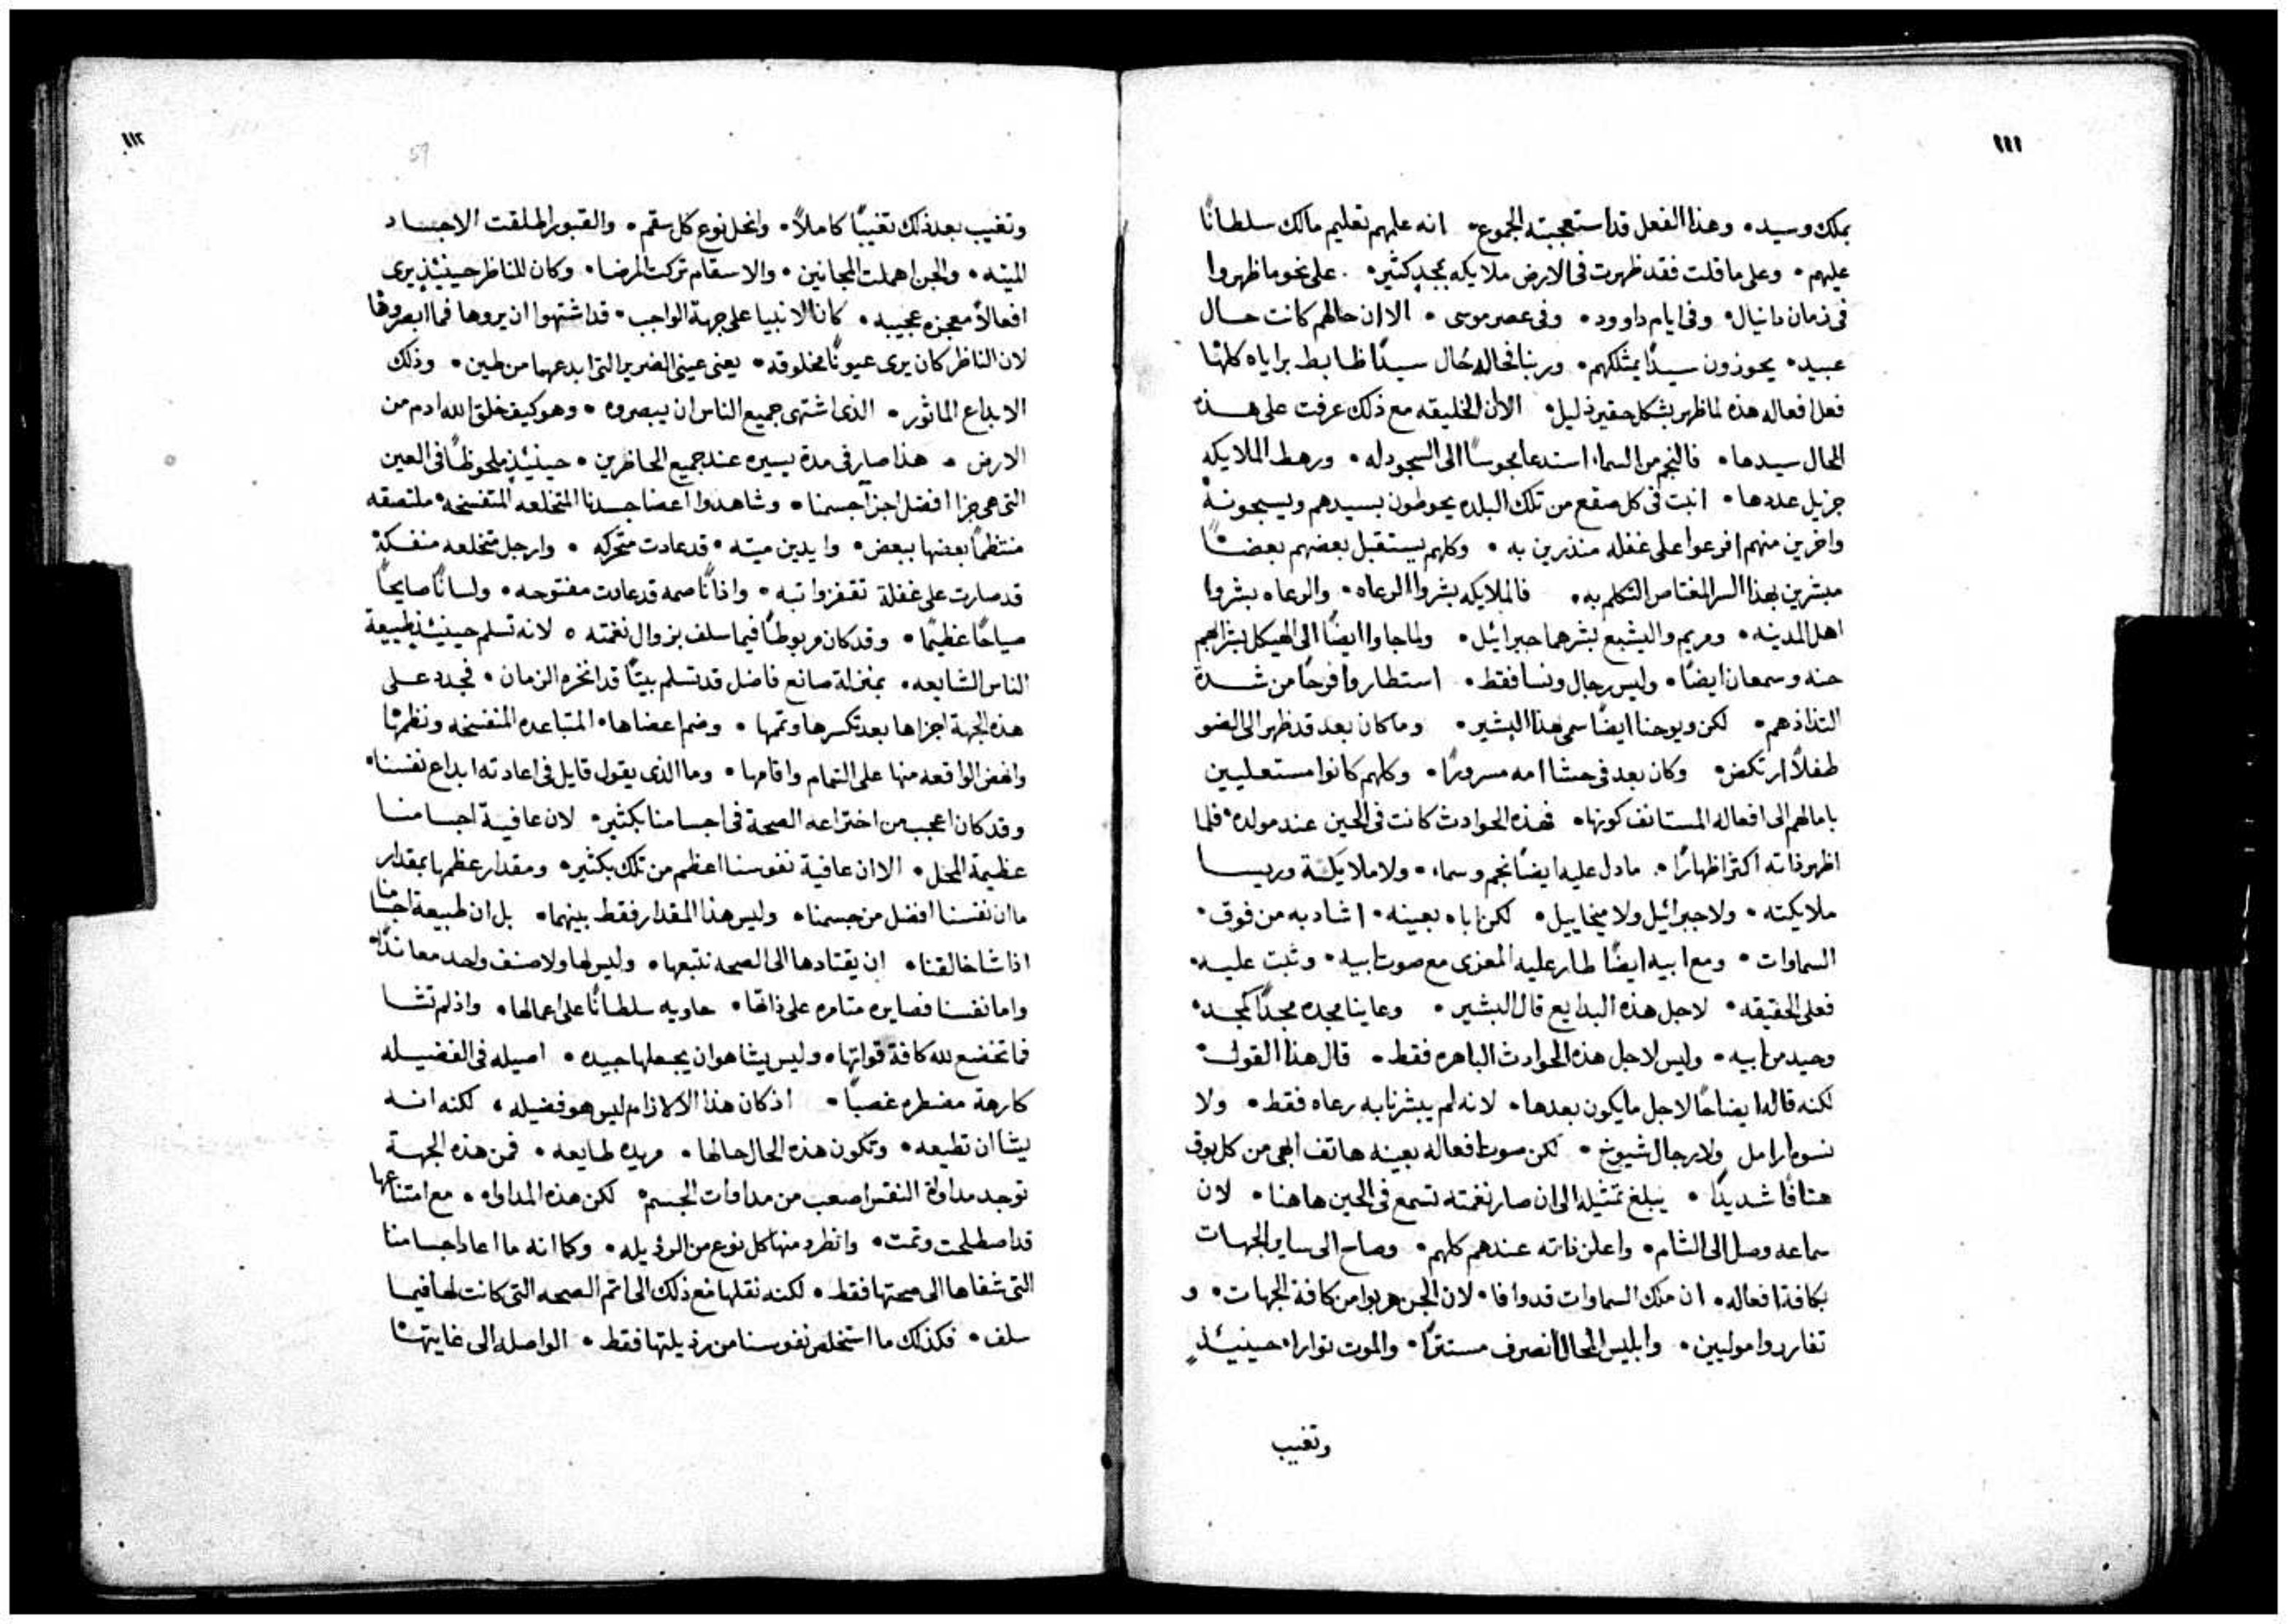 ١١١
بملك وسيد • وهذا الفعل قد استعجبته الجموع • انه علمهم تعليم مالك سلطانًا
عليهم • وعلى ما قلت فقد ظهرت فى الارض ملايكه بمجدٍ كثير • على نحو ما ظهروا
فى زمان دانيال • وفى ايام داوود • وفى عصر موسى • الا ان حالهم كانت حال
عبيد • يحوزون سيدًا يمتلكهم • وربنا فحاله حال سيدًا ظابط براياه كلها
فعل افعاله هذه لما ظهر بشكل حقير ذليل • الا ان الخليقه مع ذلك عرفت على هذه
الحال سيدها • فالنجم من السماء استدعا مجوسًا الى السجود له • ورهط الملايكه
جزيل عددها • انبت فى كل صقع من تلك البلده يحوطون بسيدهم ويسبحونه
واخرين منهم افرعوا على غفله منذرين به • وكلهم يستقبل بعضهم بعضًا
مبشرين بهذا السر المغتاص التكلم به • فالملايكه بشروا الرعاه • والرعاه بشروا
اهل المدينه • ومريم واليشبع بشرهما جبرائيل • ولما جاوا ايضًا الى الهيكل بشراهم
حنه وسمعان ايضًا • وليس رجال ونسا فقط • استطاروا فرحًا من شدة
التذاذهم • لكن ويوحنا ايضًا سمى هذا البشير • وما كان بعد قد ظهر الى الضو
طفلًا ارتكض • وكان بعد فى حشا امه مسرورًا • وكلهم كانوا مستعليين
بامالهم الى افعاله المستانف كونها • فهذه الحوادث كانت فى الحين عند مولده • فلما
اظهر ذاته اكثر اظهارًا • ما دل عليه ايضًا نجم وسماء • ولا ملايكة وريسا
ملايكته • ولا جبرائيل ولا ميخاييل • لكن اباه بعينه • اشاد به من فوق •
السماوات • ومع ابيه ايضًا طار عليه المعزى مع صوت ابيه • وثبت عليه •
فعلى الحقيقه • لاجل هذه البدايع قال البشير • وعاينا مجده مجدًا كمجد •
وحيد من ابيه • وليس لاجل هذه الحوادث الباهره فقط • قال هذا القول •
لكنه قاله ايضاحًا لاجل ما يكون بعدها • لانه لم يبشرنا به رعاه فقط • ولا
نسوه ارامل ولا رجال شيوخ • لكن صوت افعاله بعينه هاتف ابهى من كل بوق
هتافًا شديدًا • يبلغ تمثيله الى ان صار نغمته تسمع فى الحين هاهنا • لان
سماعه وصل الى الشام • واعلن ذاته عندهم كلهم • وصاح الى ساير الجهات
بكافة افعاله • ان ملك السماوات قد وافا • لان الجن هربوا من كافة الجهات • و
تفارردوا موليين • وابليس المحال انصرف مستترًا • والموت توارا • حينيئذٍ
وتغيب
١١٢
59
وتغيب بعد ذلك تغيبًا كاملًا • وانحل نوع كل سقم • والقبور اطلقت الاجساد
الميته • والجن اهملت المجانين • والاسقام تركت المرضا • وكان للناظر حينيئذٍ يرى
افعالًا معجزه عجيبه • كان الانبيا على جهة الواجب • قد اشتهوا ان يروها فما ابصروها
لان الناظر كان يرى عيونًا مخلوقه • يعنى عينى الضرير التى ابدعهما من طين • وذلك
الابداع الماثور • الذى اشتهى جميع الناس ان يبصروه • وهو كيف خلق الله ادم من
الارض • هذا صار فى مدة يسيره عند جميع الحاظرين • حينيئذٍ ملحوظًا فى العين
التى هى جزا افضل اجزآ جسمنا • وشاهدوا اعضا جسدنا المتخلعه المتفسخه ملتصقه
منتظمًا بعضها ببعض • وايدين ميته • قد عادت متحركه • وارجل متخلعه منفكة
قد صارت على غفلة تقفز واتبه • واذانًا صمه قد عادت مفتوحه • ولسانًا صايحًا
صياحًا عظيمًا • وقد كان مربوطًا فيما سلف بزوال نغمته • لانه تسلم حينيئذٍ طبيعة
الناس الشايعه • بمنزلة صانع فاضل قد تسلم بيتًا قد انخره الزمان • فجدد على
هذه الجهة اجزاها بعد تكسرها وتمها • وضم اعضاها • المتباعده المنفسخه ونظمها
وانهض الواقعه منها على التمام واقامها • وما الذى يقول قايل فى اعادته ابداع نفسنا •
وقد كان اعجب من اختراعه الصحة فى اجسامنا بكثير • لان عافية اجسامنا
عظيمة المحل • الا ان عافية نفوسنا اعظم من تلك بكثير • ومقدار عظمها بمقدار
ما ان نفسنا افضل من جسمنا • وليس هذا المقدار فقط بينهما • بل ان طبيعة اجسامنا
اذا شا خالقنا • ان يقتادها الى الصحه تتبعها • وليس لها ولا صنف واحد معاندًا
واما نفسنا فصايره متامره على ذاتها • حاويه سلطانًا على اعمالها • واذ لم تشا
فما تخضع لله كافة قواتها • وليس يشا هو ان يجعلها جيده • اصيله فى الفضيله
كارهة مضطره غصبًا • اذ كان هذا الالازام ليس هو فضيله • لكنه انه
يشا ان تطيعه • وتكون هذه الحال حالها • مريده طايعه • فمن هذه الجهة
توجد مداواة النفس اصعب من مداوات الجسم • لكن هذه المداواه • مع امتناعها
قد اصطلحت وتمت • وانطرد منها كل نوع من الرذيله • وكما انه ما اعاد اجسامنا
التى شفاها الى صحتها فقط • لكنه نقلها مع ذلك الى اتم الصحه التى كانت لها فيما
سلف • فكذلك ما استخلص نفوسنا من رذيلتها فقط • الواصله الى غايتها